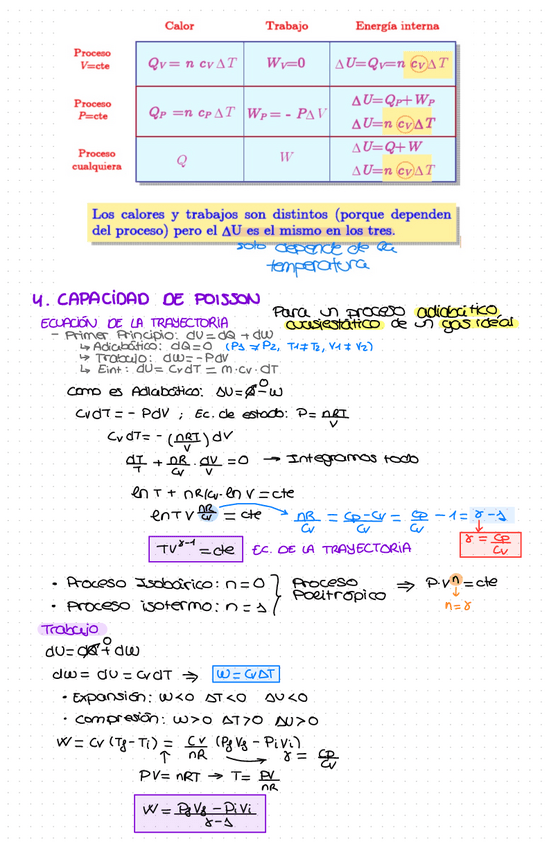 Calor Trabajo Energía interna
Proceso V=cte Q_V = n c_V ΔT W_V=0 ΔU=Q_V=n c_V ΔT
Proceso P=cte Q_P =n c_P ΔT W_P= - PΔV ΔU=Q_P+W_P
ΔU=n c_V ΔT
Proceso cualquiera Q W ΔU=Q+W
ΔU=n c_V ΔT
Los calores y trabajos son distintos (porque dependen
del proceso) pero el ΔU es el mismo en los tres.
solo depende de la
temperatura
4. CAPACIDAD DE POISSON
Para un proceso adiabático,
cuasiestático de un gas ideal
ECUACIÓN DE LA TRAYECTORIA
- Primer Principio: dU = dQ + dW
↳ Adiabático: dQ=0 (P1 ≠ P2, T1≠T2, V1≠V2)
↳ Trabajo: dW=-PdV
↳ Eint: dU = CvdT = m·cv·dT
como es Adiabático: ΔU=Q-W
0
CvdT = - PdV ; Ec. de estado: P= nRT/V
CvdT = - (nRT/V) dV
dT/T + nR/Cv · dV/V = 0 → Integramos todo
ln T + nR/Cv · ln V = cte
ln T V^(nR/Cv) = cte nR/Cv = Cp-Cv/Cv = Cp/Cv - 1 = γ-1
TV^(γ-1) = cte EC. DE LA TRAYECTORIA γ = Cp/Cv
• Proceso Isobárico: n=0 } Proceso ⇒ P·V^n = cte
• Proceso isotermo: n=1 } Politrópico n=γ
Trabajo
dU = dQ + dW
0
dW = dU = CvdT ⇒ W = CvΔT
• Expansión: W<0 ΔT<0 ΔU<0
• compresión: W>0 ΔT>0 ΔU>0
W = Cv (Tf-Ti) = Cv/nR (PfVf - PiVi)
γ = Cp/Cv
PV = nRT → T = PV/nR
W = PfVf - PiVi/γ-1